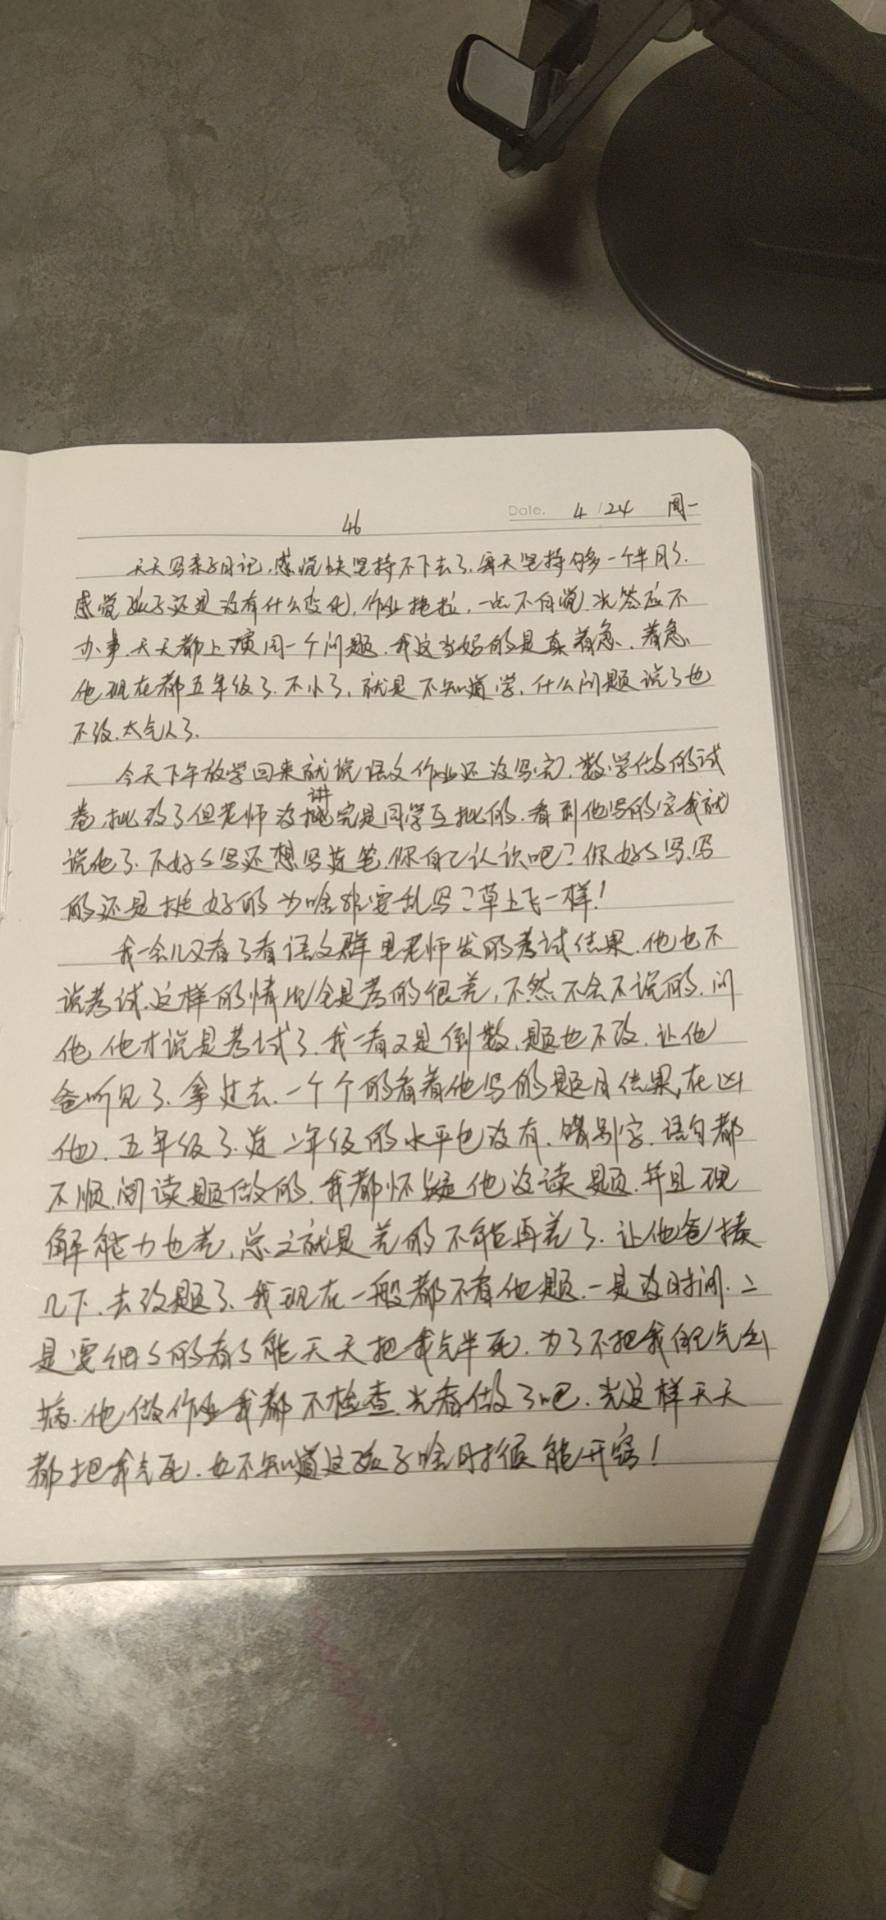 46 Date. 4/24 周一
天天写亲子日记,感觉快坚持不下去了.每天坚持够多一个半月了.
感觉孩子还是没有什么变化,作业拖拉,一点不自觉光答应不
办事.天天都上演同一个问题.我这当妈的是真着急.着急
他现在都五年级了.不小了,就是不知道学,什么问题说了也
不改.太气人了.
今天下午放学回来就说语文作业还没写完.数学做的试
卷批改了但老师没讲完是同学互批的.看到他写的字我就
说他了.不好好写还想写连笔.你自己认识吧?你好好写.写
的还是挺好的为啥非要乱写?草上飞一样!
我一会儿又看了看语文群里老师发的考试结果.他也不
说考试.这样的情况全是考的很差,不然不会不说的.问
他.他才说是考试了.我一看又是倒数.题也不改.让他
爸听见了.拿过去.一个个的看着他写的题目结果,在凶
他).五年级了.连二年级的水平也没有.错别字.语句都
不顺.阅读题做的.我都怀疑他没读题.并且理
解能力也差,总之就是差的不能再差了.让他爸揍
几下.去改题了.我现在一般都不看他题.一是没时间.二
是要细细的看看能天天把我气半死.为了不把我自己气出
病.他做作业我都不检查.光看做了吧.光这样天天
都把我气死.也不知道这孩子啥时候能开窍!